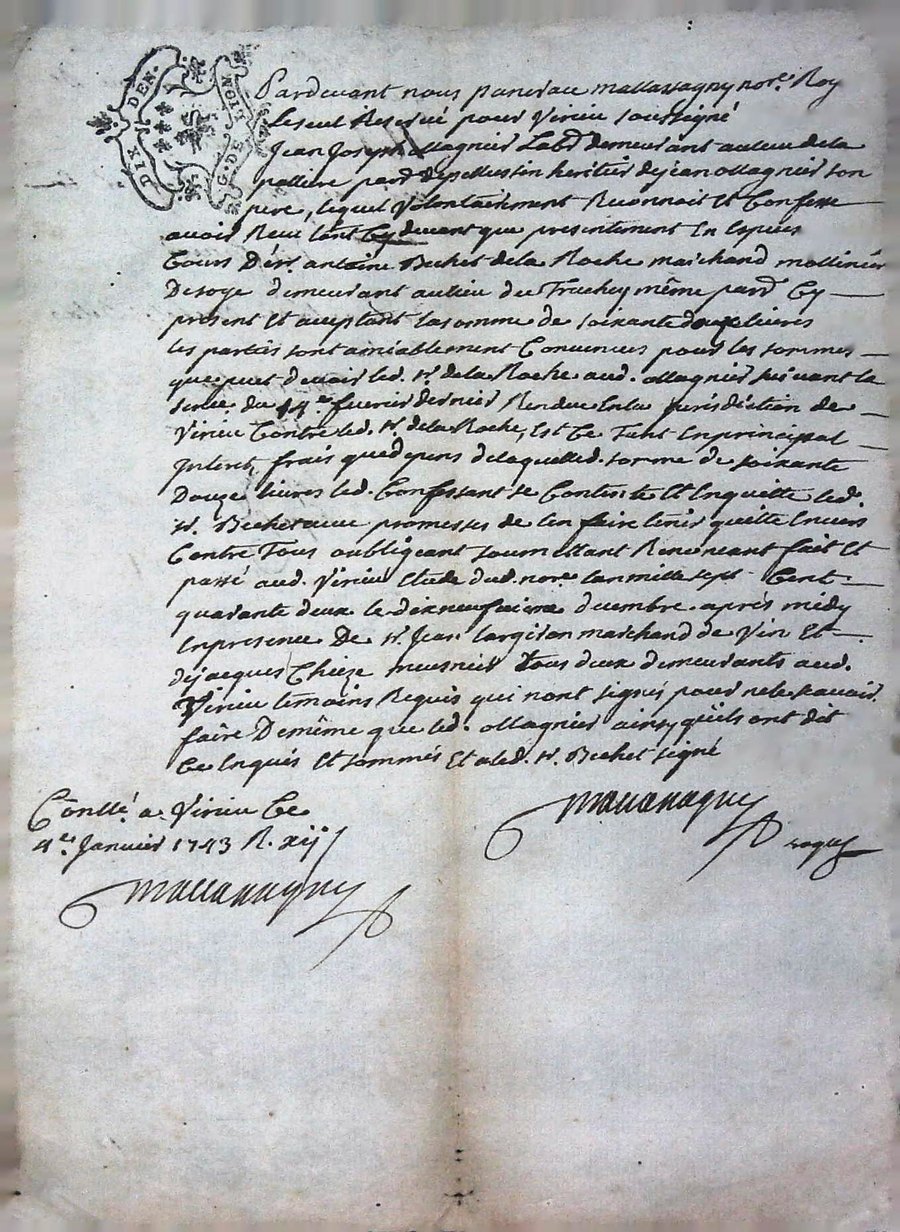 DIX DEN.
G. DE LION
Pardevant nous pancrace mallassagny nore. Roy
le seul Reservé pour Virieu soussigné
Jean Joseph ollagnier Labr. demeurant au lieu de la
parr. de pellussin heritier de jean ollagnier son
pere, lequel Volontairement Reconnoit et Confesse
avoir Receu tant Cy devant que presentement En Especes
Cours De sr. antoine Bechet de la Roche marchand mollinier
De soye demeurant au lieu du même parr. Cy
present et aceptant la somme de soixante douze livres
les partis sont amiablement Convenues pour les sommes
que peut devoir led. sr. de la Roche aud. ollagnier suivant la
sence. du fevrier dernier Rendue En la jurisdiction de
Virieu Contre led. sr. de la Roche, Est Ce Tant En principal
frais que depens de laquelle d. somme de soixante
Douze livres led. Confessant se Contente Et Enquitte led.
sr. Bechet avec promesses de l'en faire tenir quitte Envers
Contre Tous oubligeant soumettant Renonceant fait Et
passé aud. Virieu Etude dud. nore. l'an mille sept Cent
quarante deux le dixneufvieme decembre apres midy
En presence De sr. Jean marchand de Vin Et
de jacques Chieze meusnier tous deux demeurants aud.
Virieu temoins Requis qui n'ont signés pour ne le scavoir
faire De même que led. ollagnier ainsy qu'ils ont dit
Ce Enquis Et sommés Et a led. sr. Bechet signé
Conllé. a Virieu Ce
4e. Janvier 1743 R. xij s
mallassagny
mallassagny